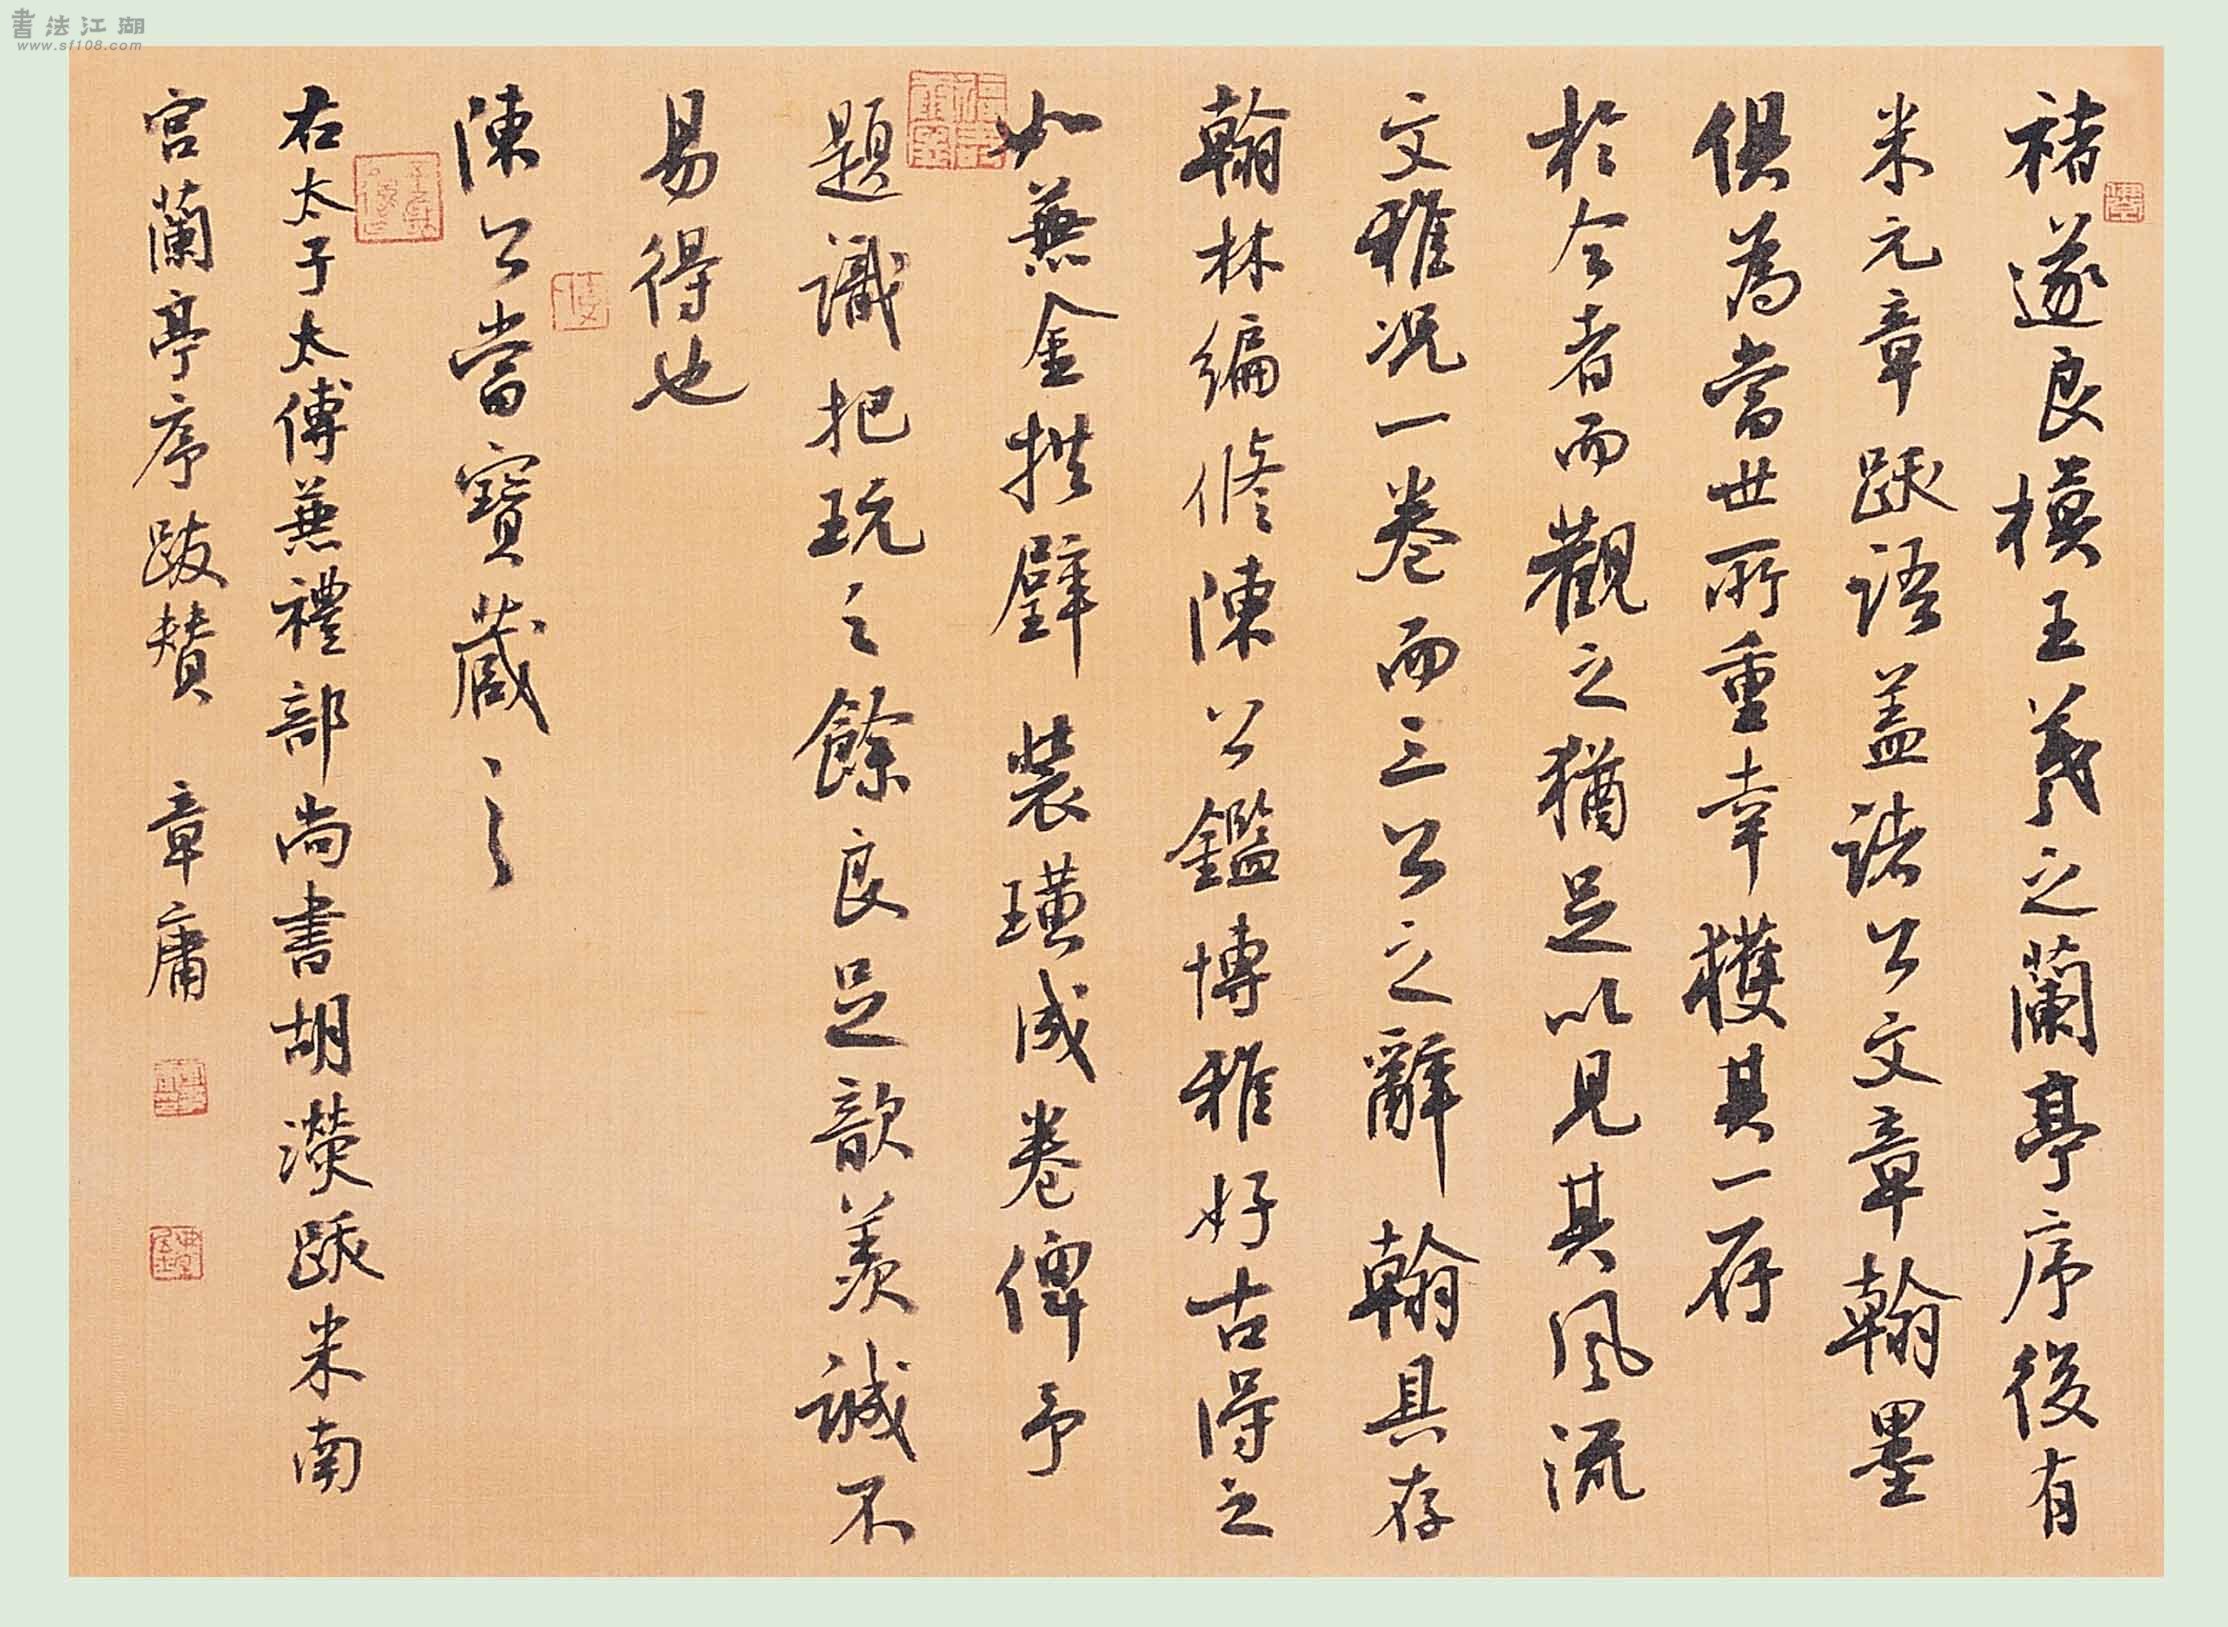 褚遂良模王羲之蘭亭序後有
米元章跋語盖諸公文章翰墨
俱為當世所重幸獲其一存
於今者而觀之猶足以見其風流
文雅况一卷而三公之辭翰具存
翰林編修陳公鑑博雅好古得之
如蒹金拱璧裝璜成卷俾予
題識把玩之餘良足歆羨誠不
易得也
陳公當寶藏之
右太子太傅蒹禮部尚書胡濙跋米南
宫蘭亭序跋賛 章庸
書法江湖
www.sf108.com